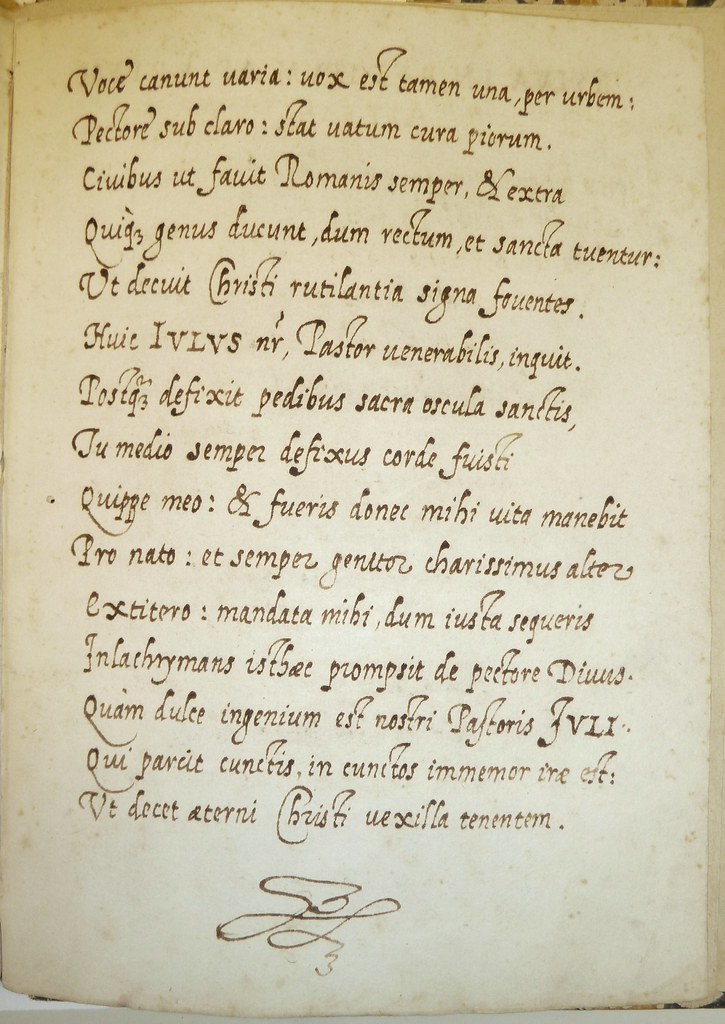 Voce canunt uaria: uox est tamen una, per urbem:
Pectore sub claro: stat uatum cura piorum.
Ciuibus ut fauit Romanis semper, & extra
Quiq̃ꝫ genus ducunt, dum rectum, et sancta tuentur:
Vt decuit Christi rutilantia signa fouentes.
Huic IVLVS nr̃, Pastor uenerabilis, inquit.
Postq̃ꝫ defixit pedibus sacra oscula sanctis,
Tu medio semper defixus corde fuisti
Quippe meo: & fueris donec mihi uita manebit
Pro nato: et semper genitor charissimus alter
Extitero: mandata mihi, dum iusta sequeris
Inlachrymans isthæc prompsit de pectore Diuus.
Quàm dulce ingenium est nostri Pastoris IVLI.
Qui parcit cunctis, in cunctos immemor iræ est:
Vt decet æterni Christi uexilla tenentem.